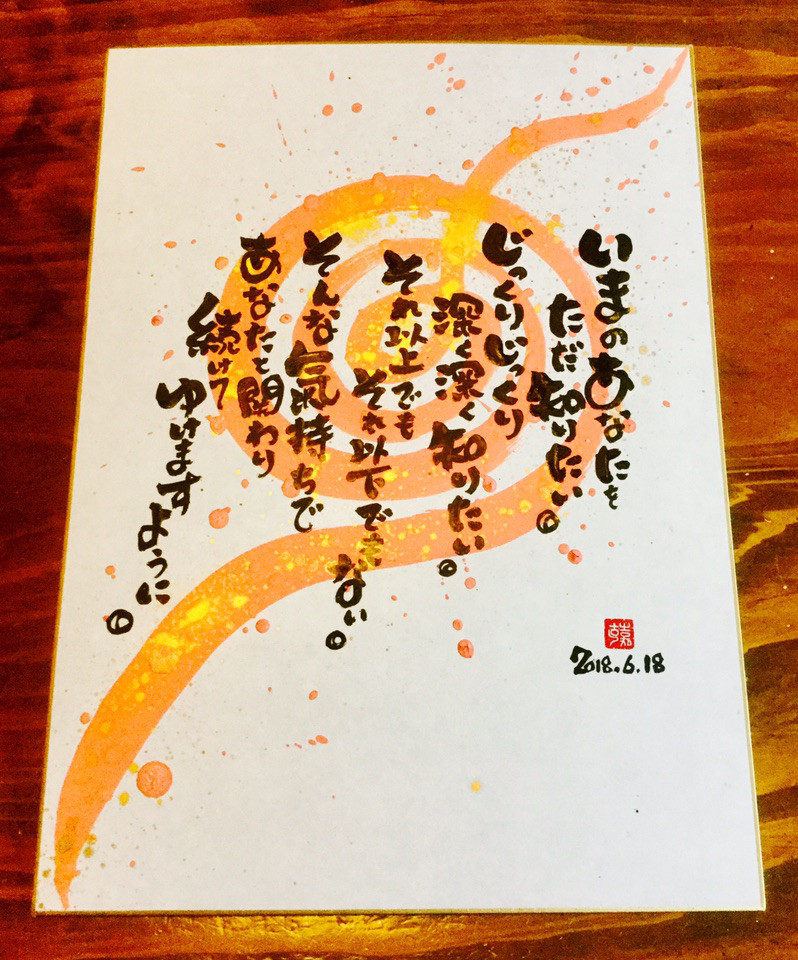 いまのあなたを
ただ知りたい。
じっくりじっくり
深く深く知りたい。
それ以上でも
それ以下でもない。
そんな氣持ちで
あなたと関わり
続けて
ゆけますように。
2018.6.18